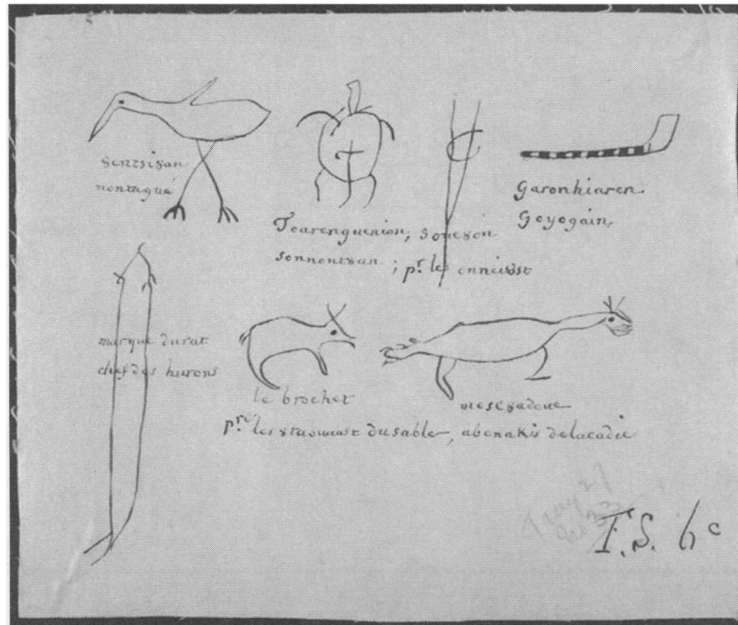 8entsi8an
nontagué
Toarenguenion, soneson
sonnont8an; pr les onnei8st
Garonhiaren
Goyogain,
marque du rat
chef des hurons
le brochet
pre les 8tao8ast du sable, abenakis delacadie
mese8adoue
F.S. 6c